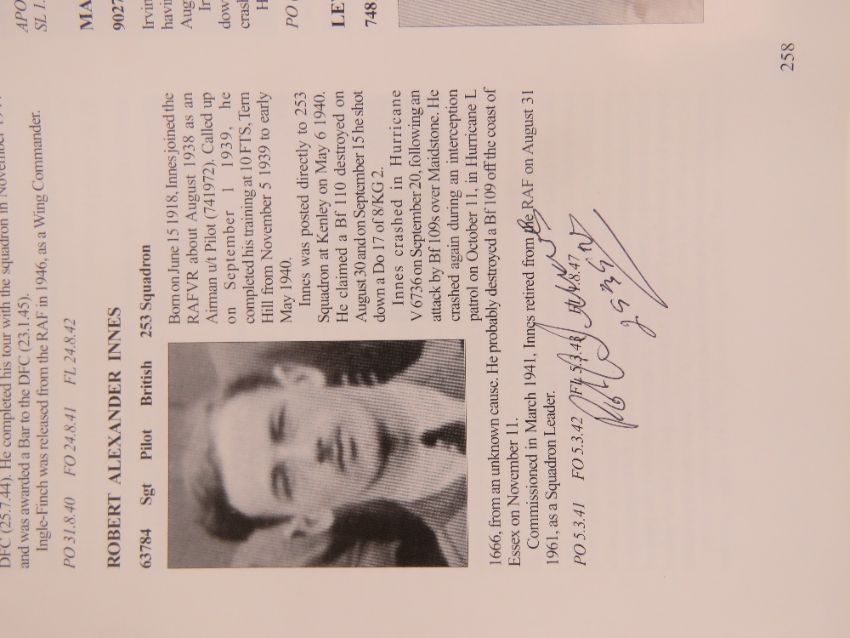 DFC (25.7.44). He completed his tour with the squadron in November
and was awarded a Bar to the DFC (23.1.45).
Ingle-Finch was released from the RAF in 1946, as a Wing Commander.
PO 31.8.40 FO 24.8.41 FL 24.8.42
ROBERT ALEXANDER INNES
63784 Sgt Pilot British 253 Squadron
Born on June 15 1918, Innes joined the
RAFVR about August 1938 as an
Airman u/t Pilot (741972). Called up
on September 1 1939, he
completed his training at 10 FTS, Tern
Hill from November 5 1939 to early
May 1940.
Innes was posted directly to 253
Squadron at Kenley on May 6 1940.
He claimed a Bf 110 destroyed on
August 30 and on September 15 he shot
down a Do 17 of 8/KG 2.
Innes crashed in Hurricane
V 6736 on September 20, following an
attack by Bf 109s over Maidstone. He
crashed again during an interception
patrol on October 11, in Hurricane L
1666, from an unknown cause. He probably destroyed a Bf 109 off the coast of
Essex on November 11.
Commissioned in March 1941, Innes retired from the RAF on August 31
1961, as a Squadron Leader.
PO 5.3.41 FO 5.3.42 FL 5.3.43 FL 1.8.47
253
APO
SL 1.
MA
9027
Irvin
havin
Aug
Ir
dow
crash
H
PO
LE
748
258